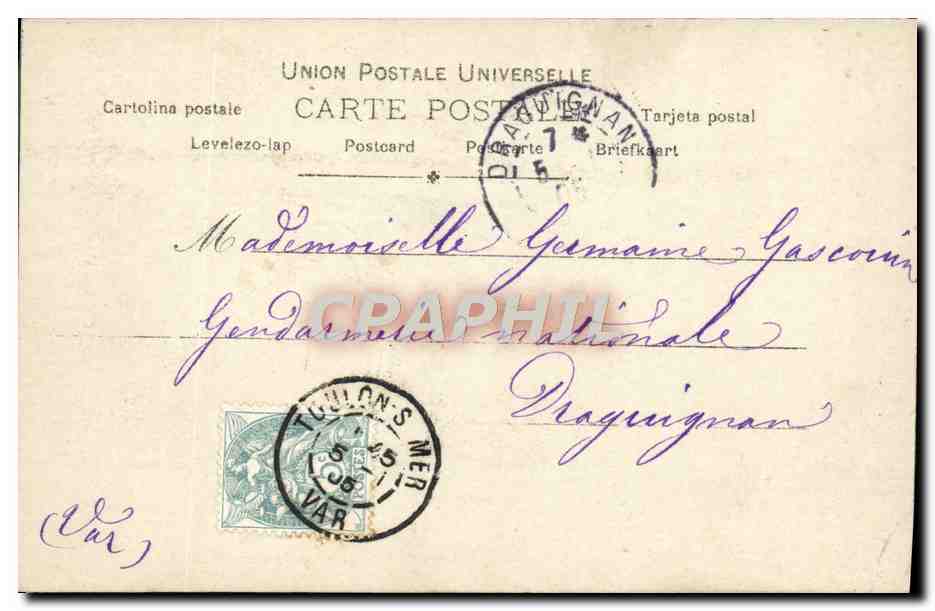 UNION POSTALE UNIVERSELLE
CARTE POSTALE
Cartolina postale
Tarjeta postal
Levelezo-lap Postcard Postkarte Briefkaart
DRAGUIGNAN
7
5
05
Mademoiselle Germaine Gascouin
Gendarmerie nationale
Draguignan
(Var)
CPARPHIL
TOULON-S-MER
5 05
VAR